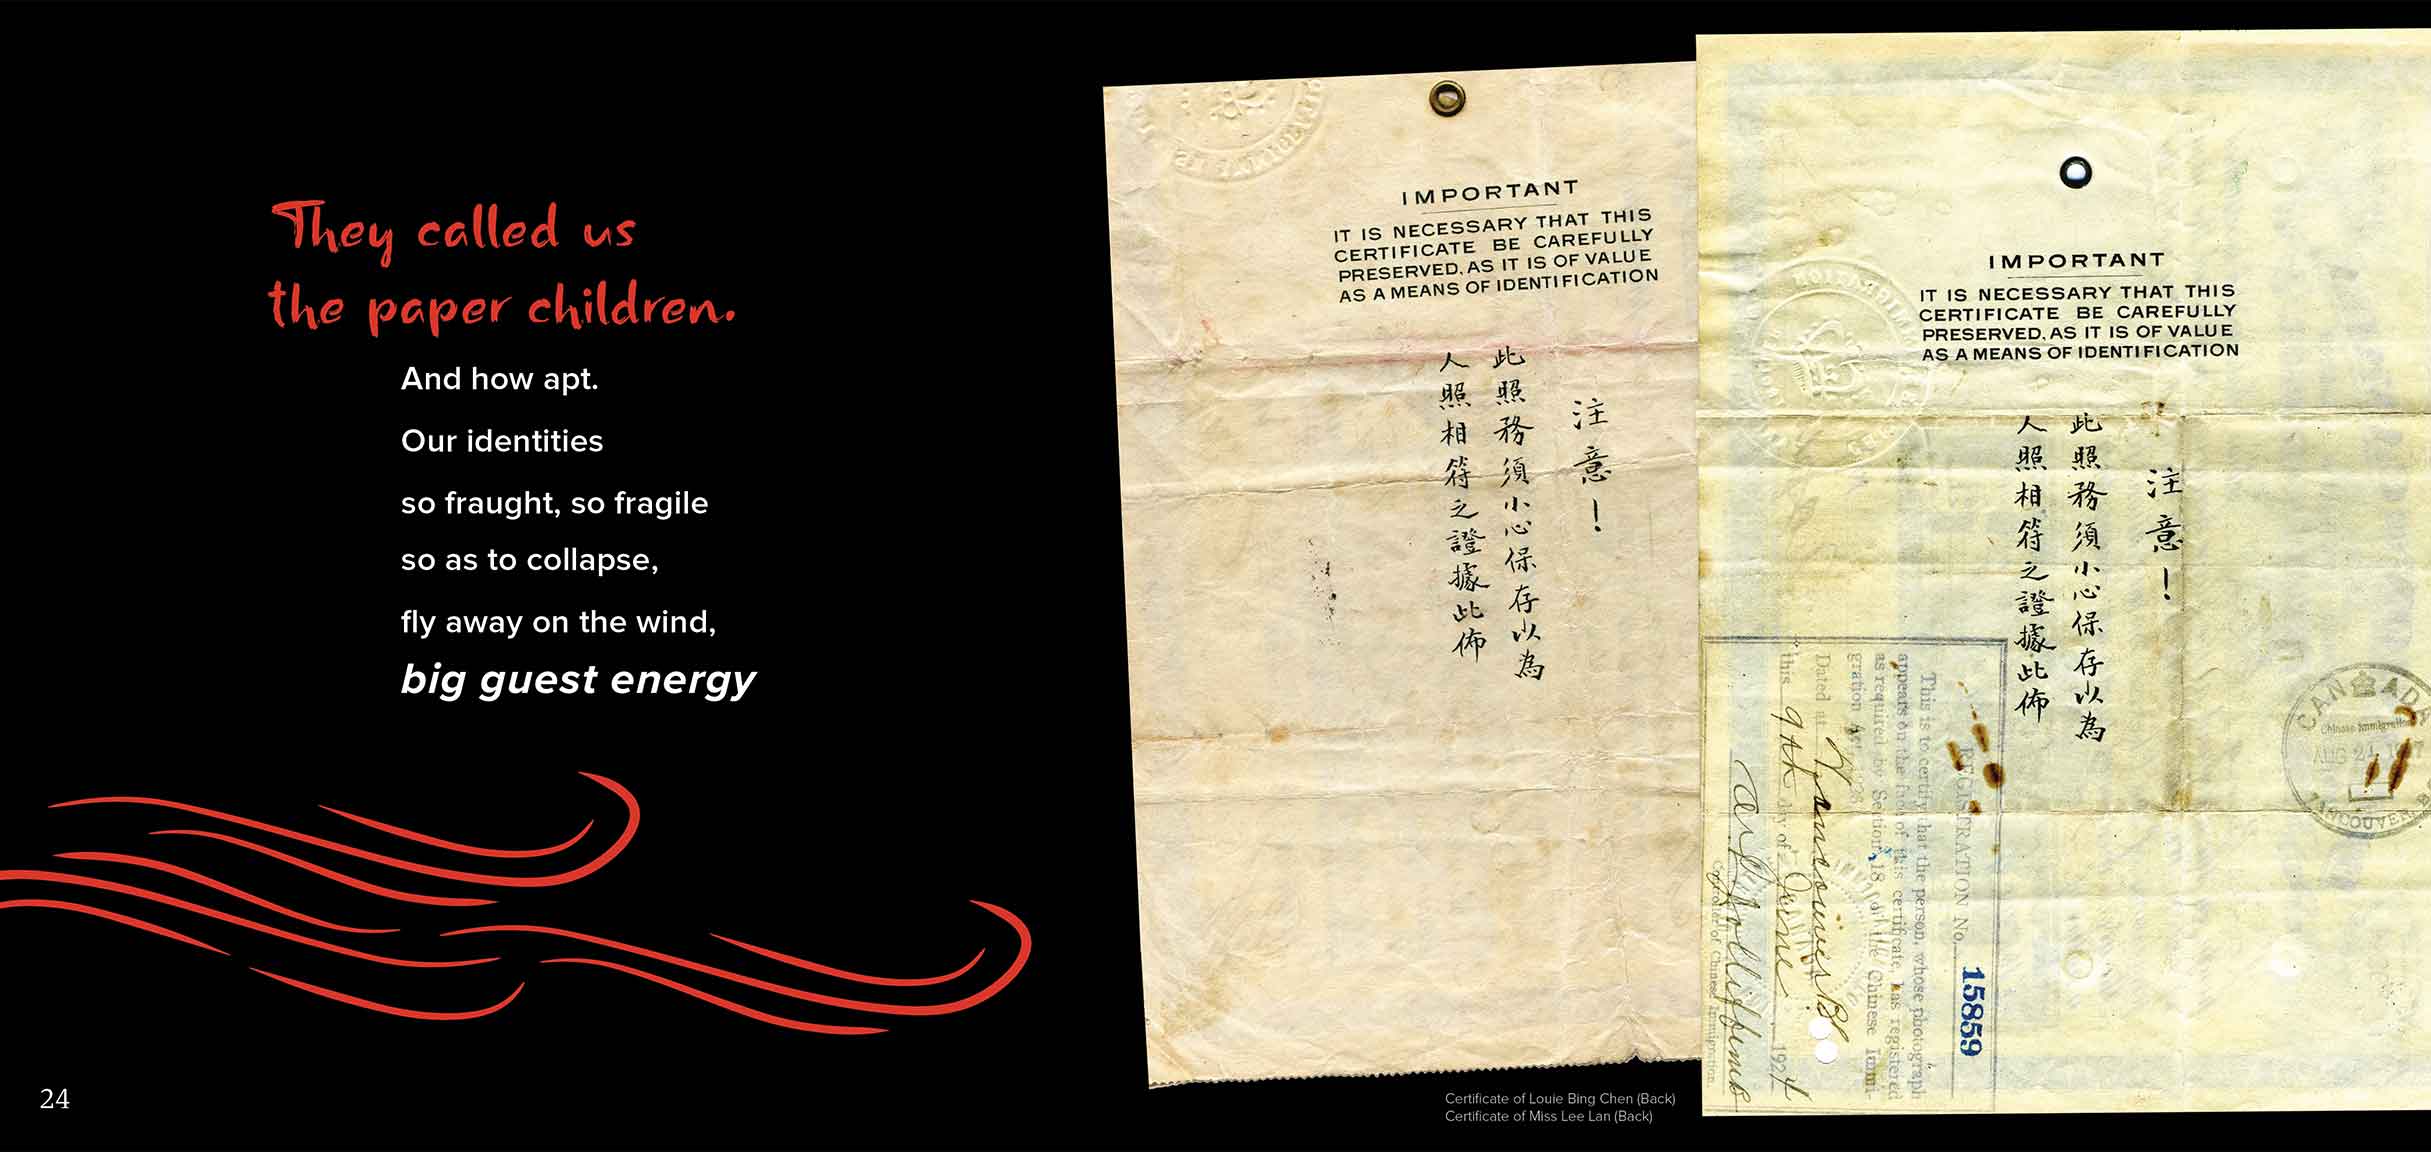 They called us
the paper children.
And how apt.
Our identities
so fraught, so fragile
so as to collapse,
fly away on the wind,
big guest energy
24
IMPORTANT
IT IS NECESSARY THAT THIS
CERTIFICATE BE CAREFULLY
PRESERVED, AS IT IS OF VALUE
AS A MEANS OF IDENTIFICATION
注意！
此照務須小心保存以為
人照相符之證據此佈
Certificate of Louie Bing Chen (Back)
Certificate of Miss Lee Lan (Back)
IMPORTANT
IT IS NECESSARY THAT THIS
CERTIFICATE BE CAREFULLY
PRESERVED, AS IT IS OF VALUE
AS A MEANS OF IDENTIFICATION
注意！
此照務須小心保存以為
人照相符之證據此佈
REGISTRATION No. 15859
This is to certify that the person, whose photograph
appears on the face of this certificate, has registered
as required by Section 18 of the Chinese Immi-
gration Act
Dated at Vancouver BC
this 9th day of June 1924
Controller of Chinese Immigration.
CANADA
Chinese Immigration
AUG 21
VANCOUVER B